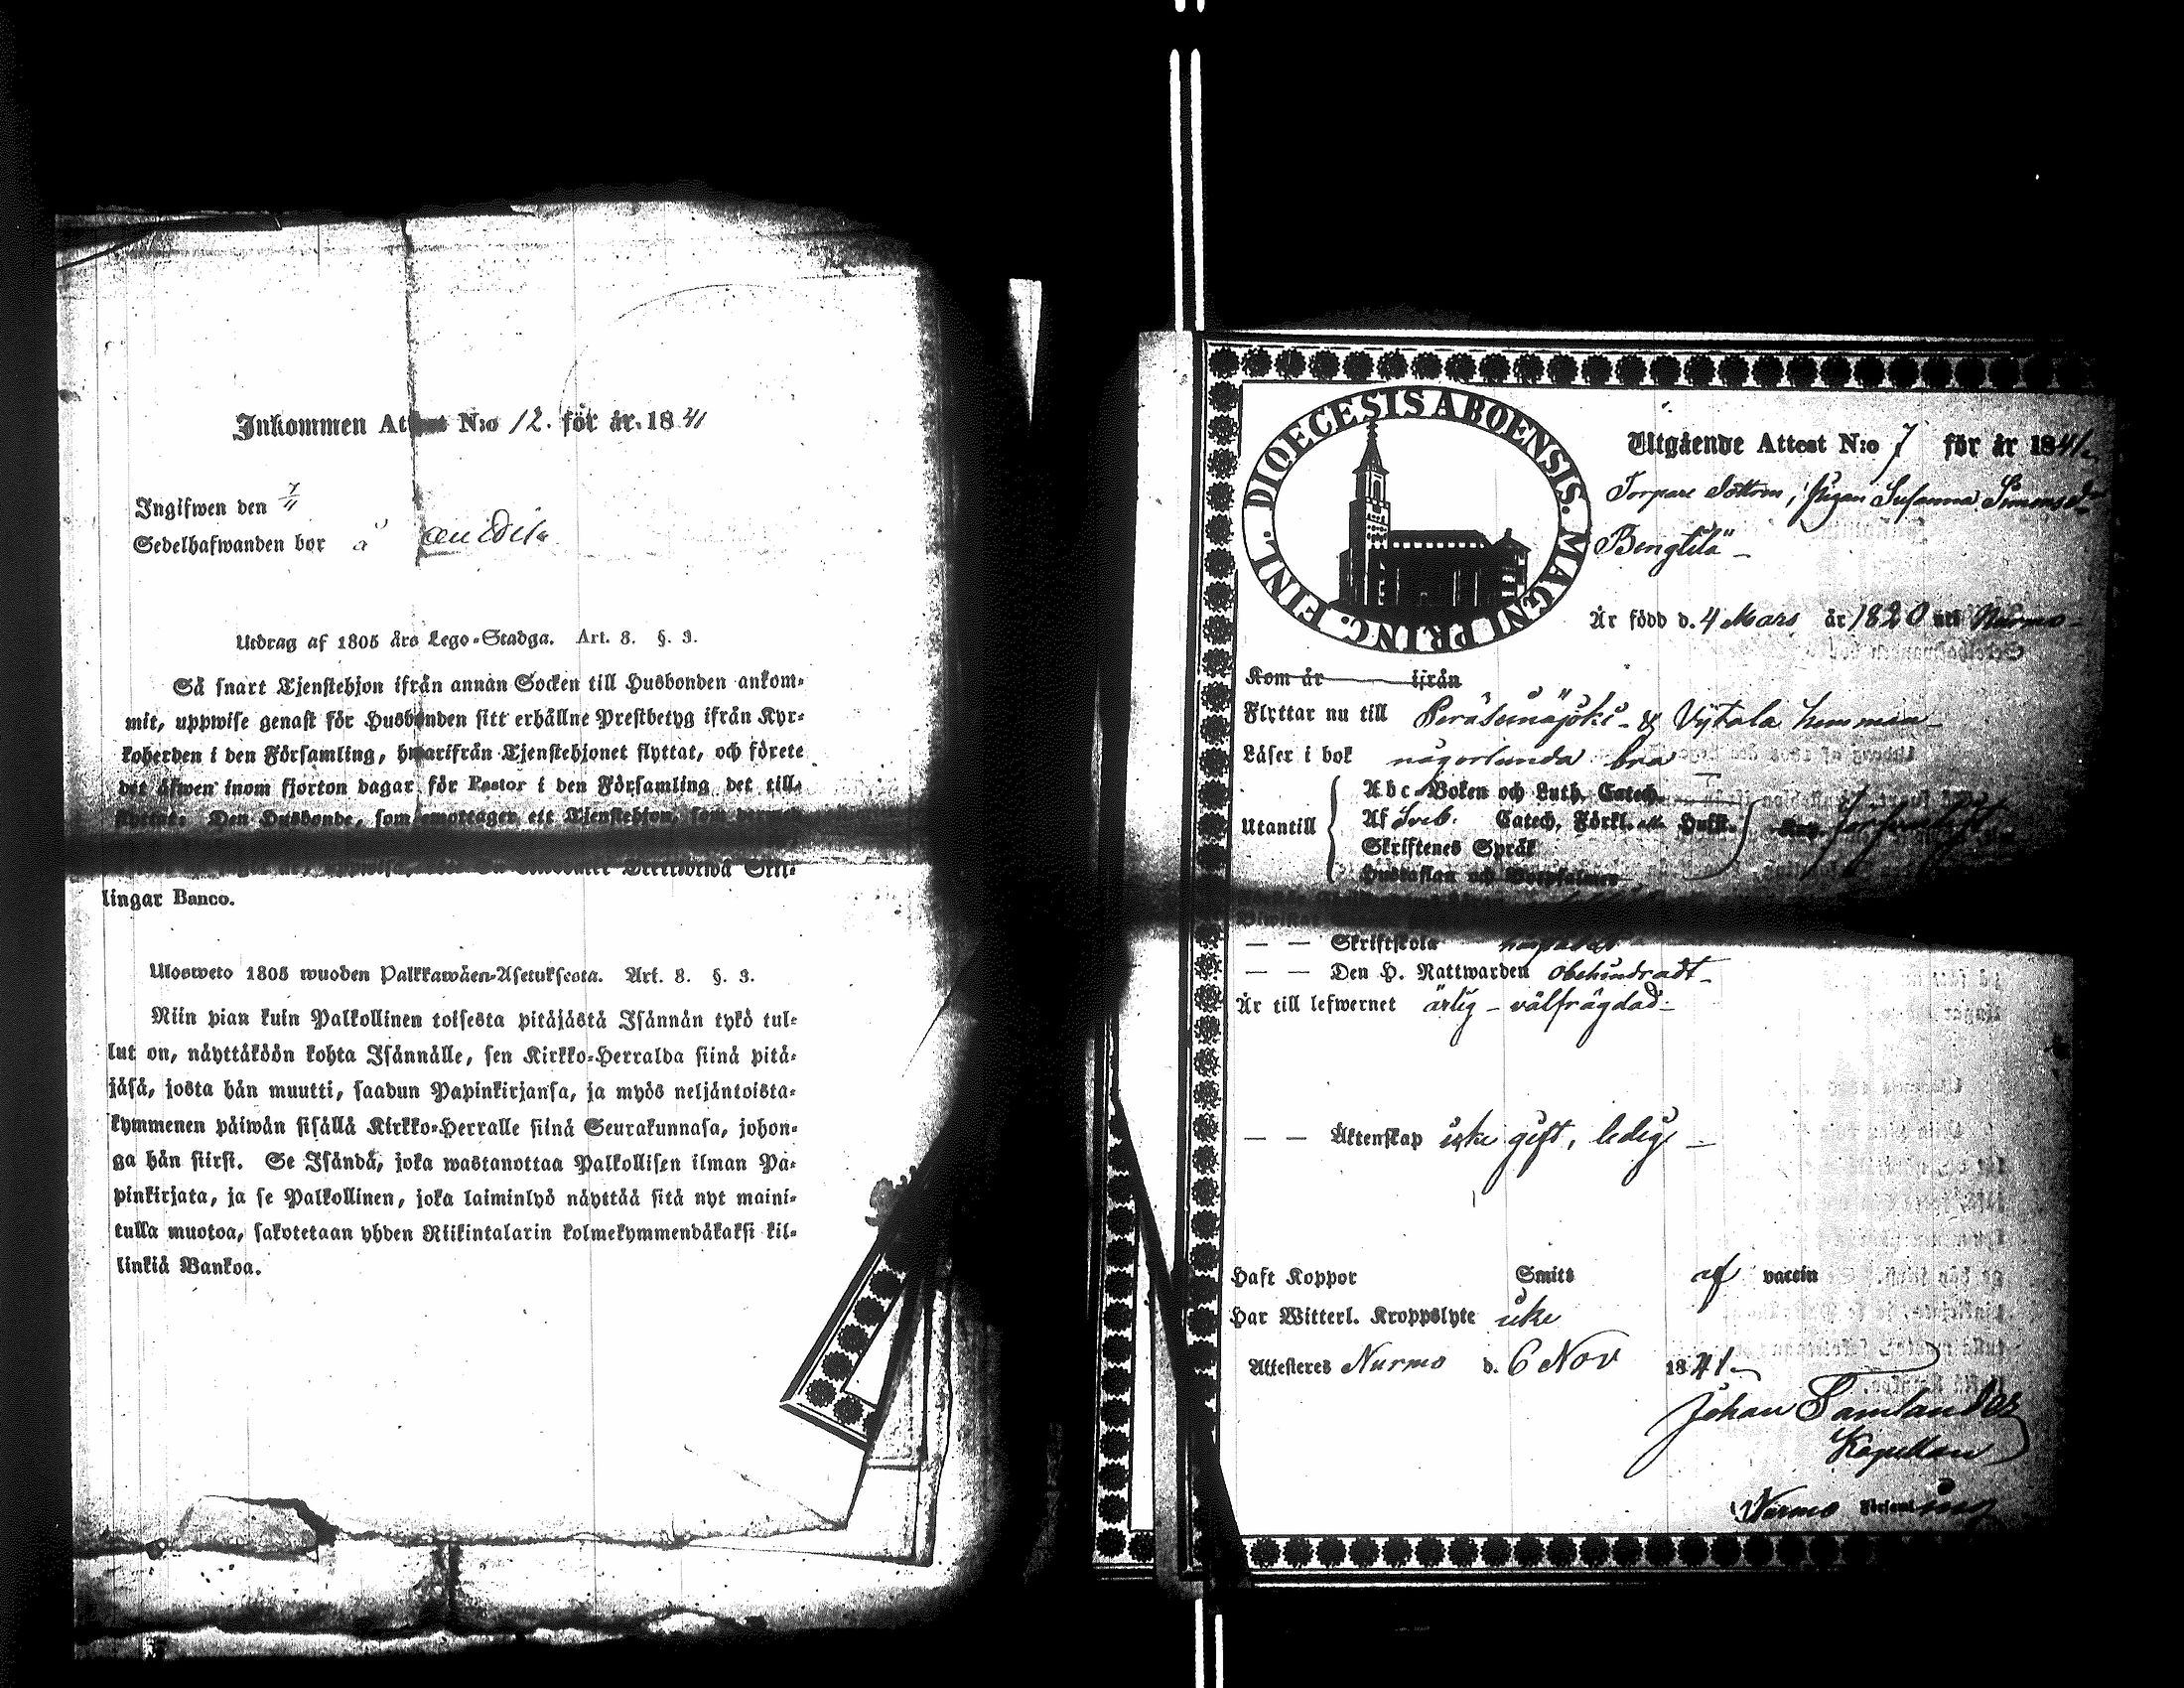 Inkommen Attest N:o 12. för år 1841
Ingifwen den 7/11
Sedelhafwanden bor å
Utdrag af 1805 års Lego-Stadga. Art. 8. §. 3.
Så snart Tjenstehjon ifrån annan Socken till Husbonden ankom-
mit, uppwise genast för Husbonden sitt erhållne Prestbetyg ifrån Kyr-
koherden i den Församling, hwarifrån Tjenstehjonet flyttat, och förete
det äfwen inom fjorton dagar för Pastor i den Församling det till-
flyttat. Den Husbonde, som emottager ett Tjenstehjon, som
lingar Banco.
Ulosweto 1805 wuoden Palkkawäen-Asetuksesta. Art. 8. §. 3.
Niin pian kuin Palkollinen toisesta pitäjästä Isännän tykö tul-
lut on, näyttäköön kohta Isännälle, sen Kirkko-Herralda siinä pitä-
jäsä, josta hän muutti, saadun Papinkirjansa, ja myös neljäntoista-
kymmenen päiwän sisällä Kirkko-Herralle siinä Seurakunnasa, johon-
ga hän siirsi. Se Isändä, joka wastanottaa Palkollisen ilman Pa-
pinkirjata, ja se Palkollinen, joka laiminlyö näyttää sitä nyt maini-
tulla muotoa, sakotetaan yhden Riikintalarin kolmekymmendäkaksi kil-
linkiä Bankoa.
DIOECESIS ABOENSIS. MAGNI PRINC. FINL.
Utgående Attest N:o 7 för år 1841
Torpare Dottern, Pigan Susanna Simonsdr
Bengtilä
Är född d. 4 Mars år 1820 uti Nurmo
Kom år ifrån
Flyttar nu till Peräseinäjoki & Vytala hemman
Läser i bok någorlunda bra
Utantill
Abc-Boken och Luth. Catech.
Af Sveb. Catech. Förkl. Hufst.
Skriftenes Språk
Hustaflan och Botpsalmer
— — Skriftskola
— — Den H. Nattwarden obehindradt
Är till lefwernet ärlig - välfrägdad
— — Äktenskap icke gift, ledig
Haft Koppor Smits af vaccin
Har Witterl. Kroppslyte icke
Attesteres Nurmo d. 6 Nov 1841
Johan Tamlander
Kapellan
Nurmo